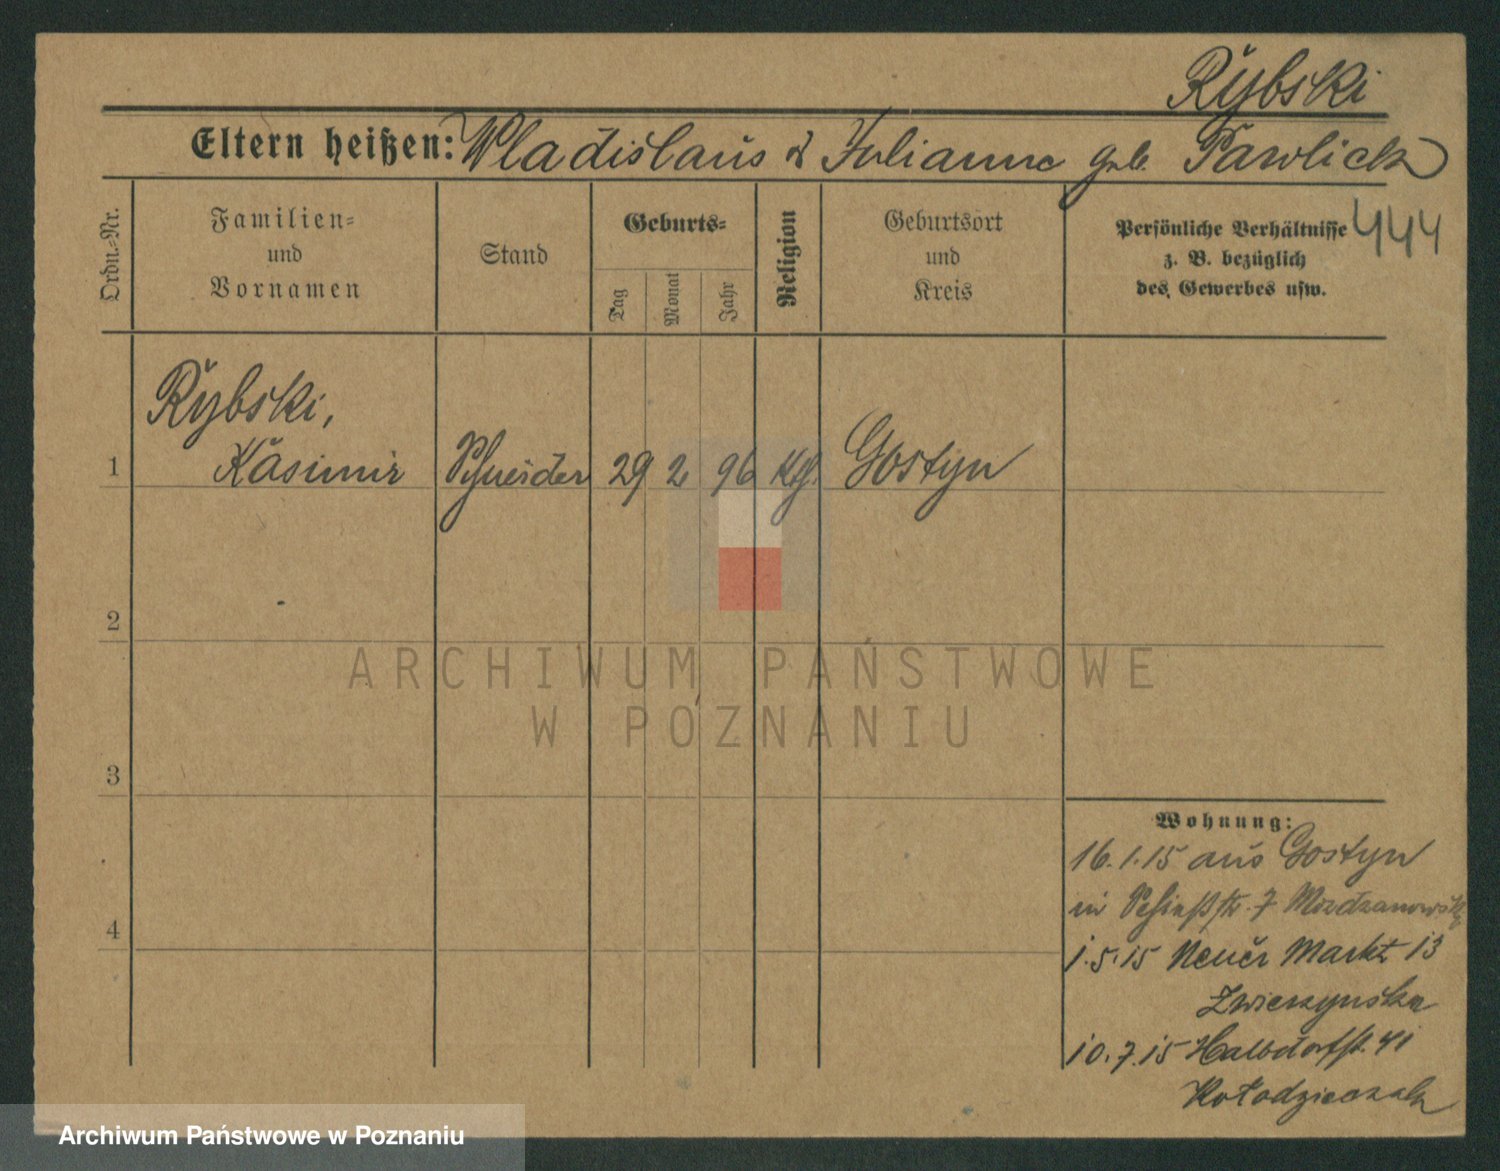 Rybski
Eltern heißen: Wladislaus & Julianne geb. Pawlick
444
Ordn.-Nr.
Familien-
und
Vornamen
Stand
Geburts-
Tag
Monat
Jahr
Religion
Geburtsort
und
Kreis
Persönliche Verhältnisse
z. B. bezüglich
des Gewerbes usw.
Rybski,
1 Kasimir Schneider 29 2 96 Kth. Gostyn
2
ARCHIWUM PAŃSTWOWE
W POZNANIU
3
Wohnung:
16.1.15 aus Gostyn
in 7
4
1.5.15 Neuer Markt 13
Zwierzynska
10.7.15 Halbdorfstr. 41
Kołodzieczak
Archiwum Państwowe w Poznaniu